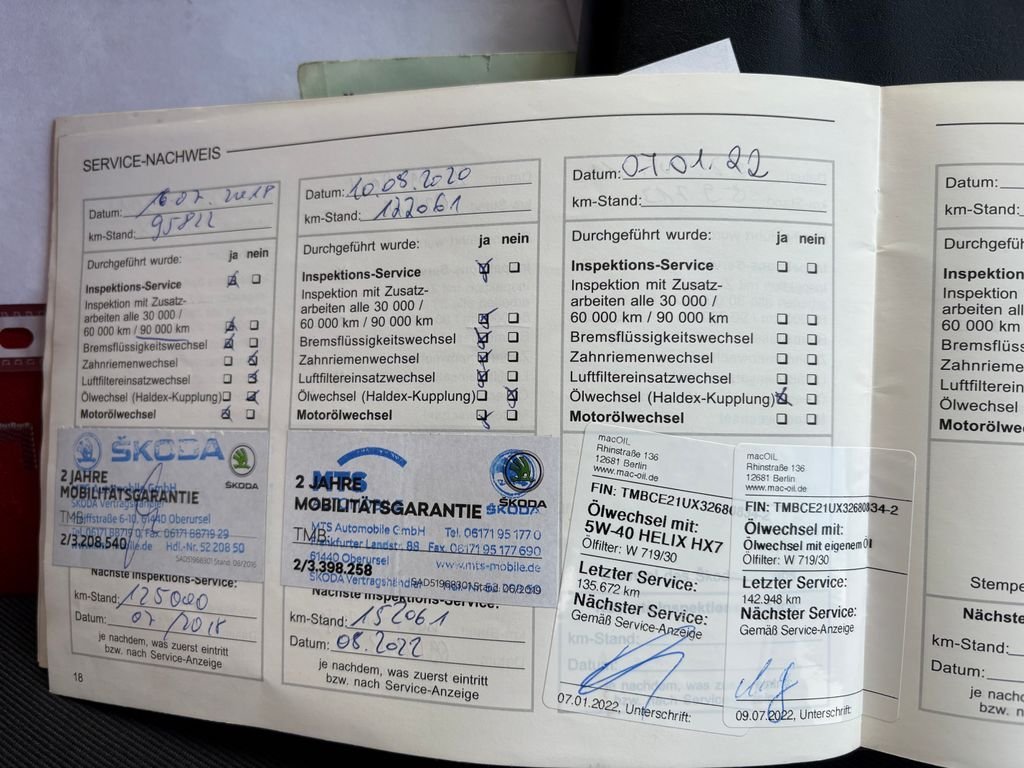 SERVICE-NACHWEIS
Datum: 16.07.2018
km-Stand: 95822
Durchgeführt wurde: ja nein
Inspektions-Service
Inspektion mit Zusatz-
arbeiten alle 30 000 /
60 000 km / 90 000 km
Bremsflüssigkeitswechsel
Zahnriemenwechsel
Luftfiltereinsatzwechsel
Ölwechsel (Haldex-Kupplung)
Motorölwechsel
ŠKODA
ŠKODA
2 JAHRE
MOBILITÄTSGARANTIE
ŠKODA Vertragshändler
TMB
61440 Oberursel
2/3.208.540
Hdl.-Nr. 52 208 50
Nächste Inspektions-Service:
km-Stand: 125000
Datum: 07/2018
je nachdem, was zuerst eintritt
bzw. nach Service-Anzeige
18
Datum: 10.08.2020
km-Stand: 122061
Durchgeführt wurde: ja nein
Inspektions-Service
Inspektion mit Zusatz-
arbeiten alle 30 000 /
60 000 km / 90 000 km
Bremsflüssigkeitswechsel
Zahnriemenwechsel
Luftfiltereinsatzwechsel
Ölwechsel (Haldex-Kupplung)
Motorölwechsel
MTS
2 JAHRE
MOBILITÄTSGARANTIE
ŠKODA
ŠKODA
MTS Automobile GmbH Tel. 06171 95 177 0
TMB
Frankfurter Landstr. 88 Fax 06171 95 177 690
61440 Oberursel www.mts-mobile.de
2/3.398.258
ŠKODA Vertragshändler
Nächste Inspektions-Service:
km-Stand: 152061
Datum: 08.2022
je nachdem, was zuerst eintritt
bzw. nach Service-Anzeige
Datum: 07.01.22
km-Stand:
Durchgeführt wurde: ja nein
Inspektions-Service
Inspektion mit Zusatz-
arbeiten alle 30 000 /
60 000 km / 90 000 km
Bremsflüssigkeitswechsel
Zahnriemenwechsel
Luftfiltereinsatzwechsel
Ölwechsel (Haldex-Kupplung)
Motorölwechsel
macOIL
Rhinstraße 136
12681 Berlin
www.mac-oil.de
FIN: TMBCE21UX32680
Ölwechsel mit:
5W-40 HELIX HX7
Ölfilter: W 719/30
Letzter Service:
135.672 km
Nächster Service:
Gemäß Service-Anzeige
07.01.2022, Unterschrift:
macOIL
Rhinstraße 136
12681 Berlin
www.mac-oil.de
FIN: TMBCE21UX32680834-2
Ölwechsel mit:
Ölwechsel mit eigenem Öl
Ölfilter: W 719/30
Letzter Service:
142.948 km
Nächster Service:
Gemäß Service-Anzeige
09.07.2022, Unterschrift:
Datum:
km-Stand:
Durchgeführ
Inspektion
Inspektion
arbeiten all
60 000 km
Bremsflüss
Zahnrieme
Luftfilterein
Ölwechsel
Motorölwe
Stempe
Nächste
km-Stand:
Datum:
je nach
bzw. n